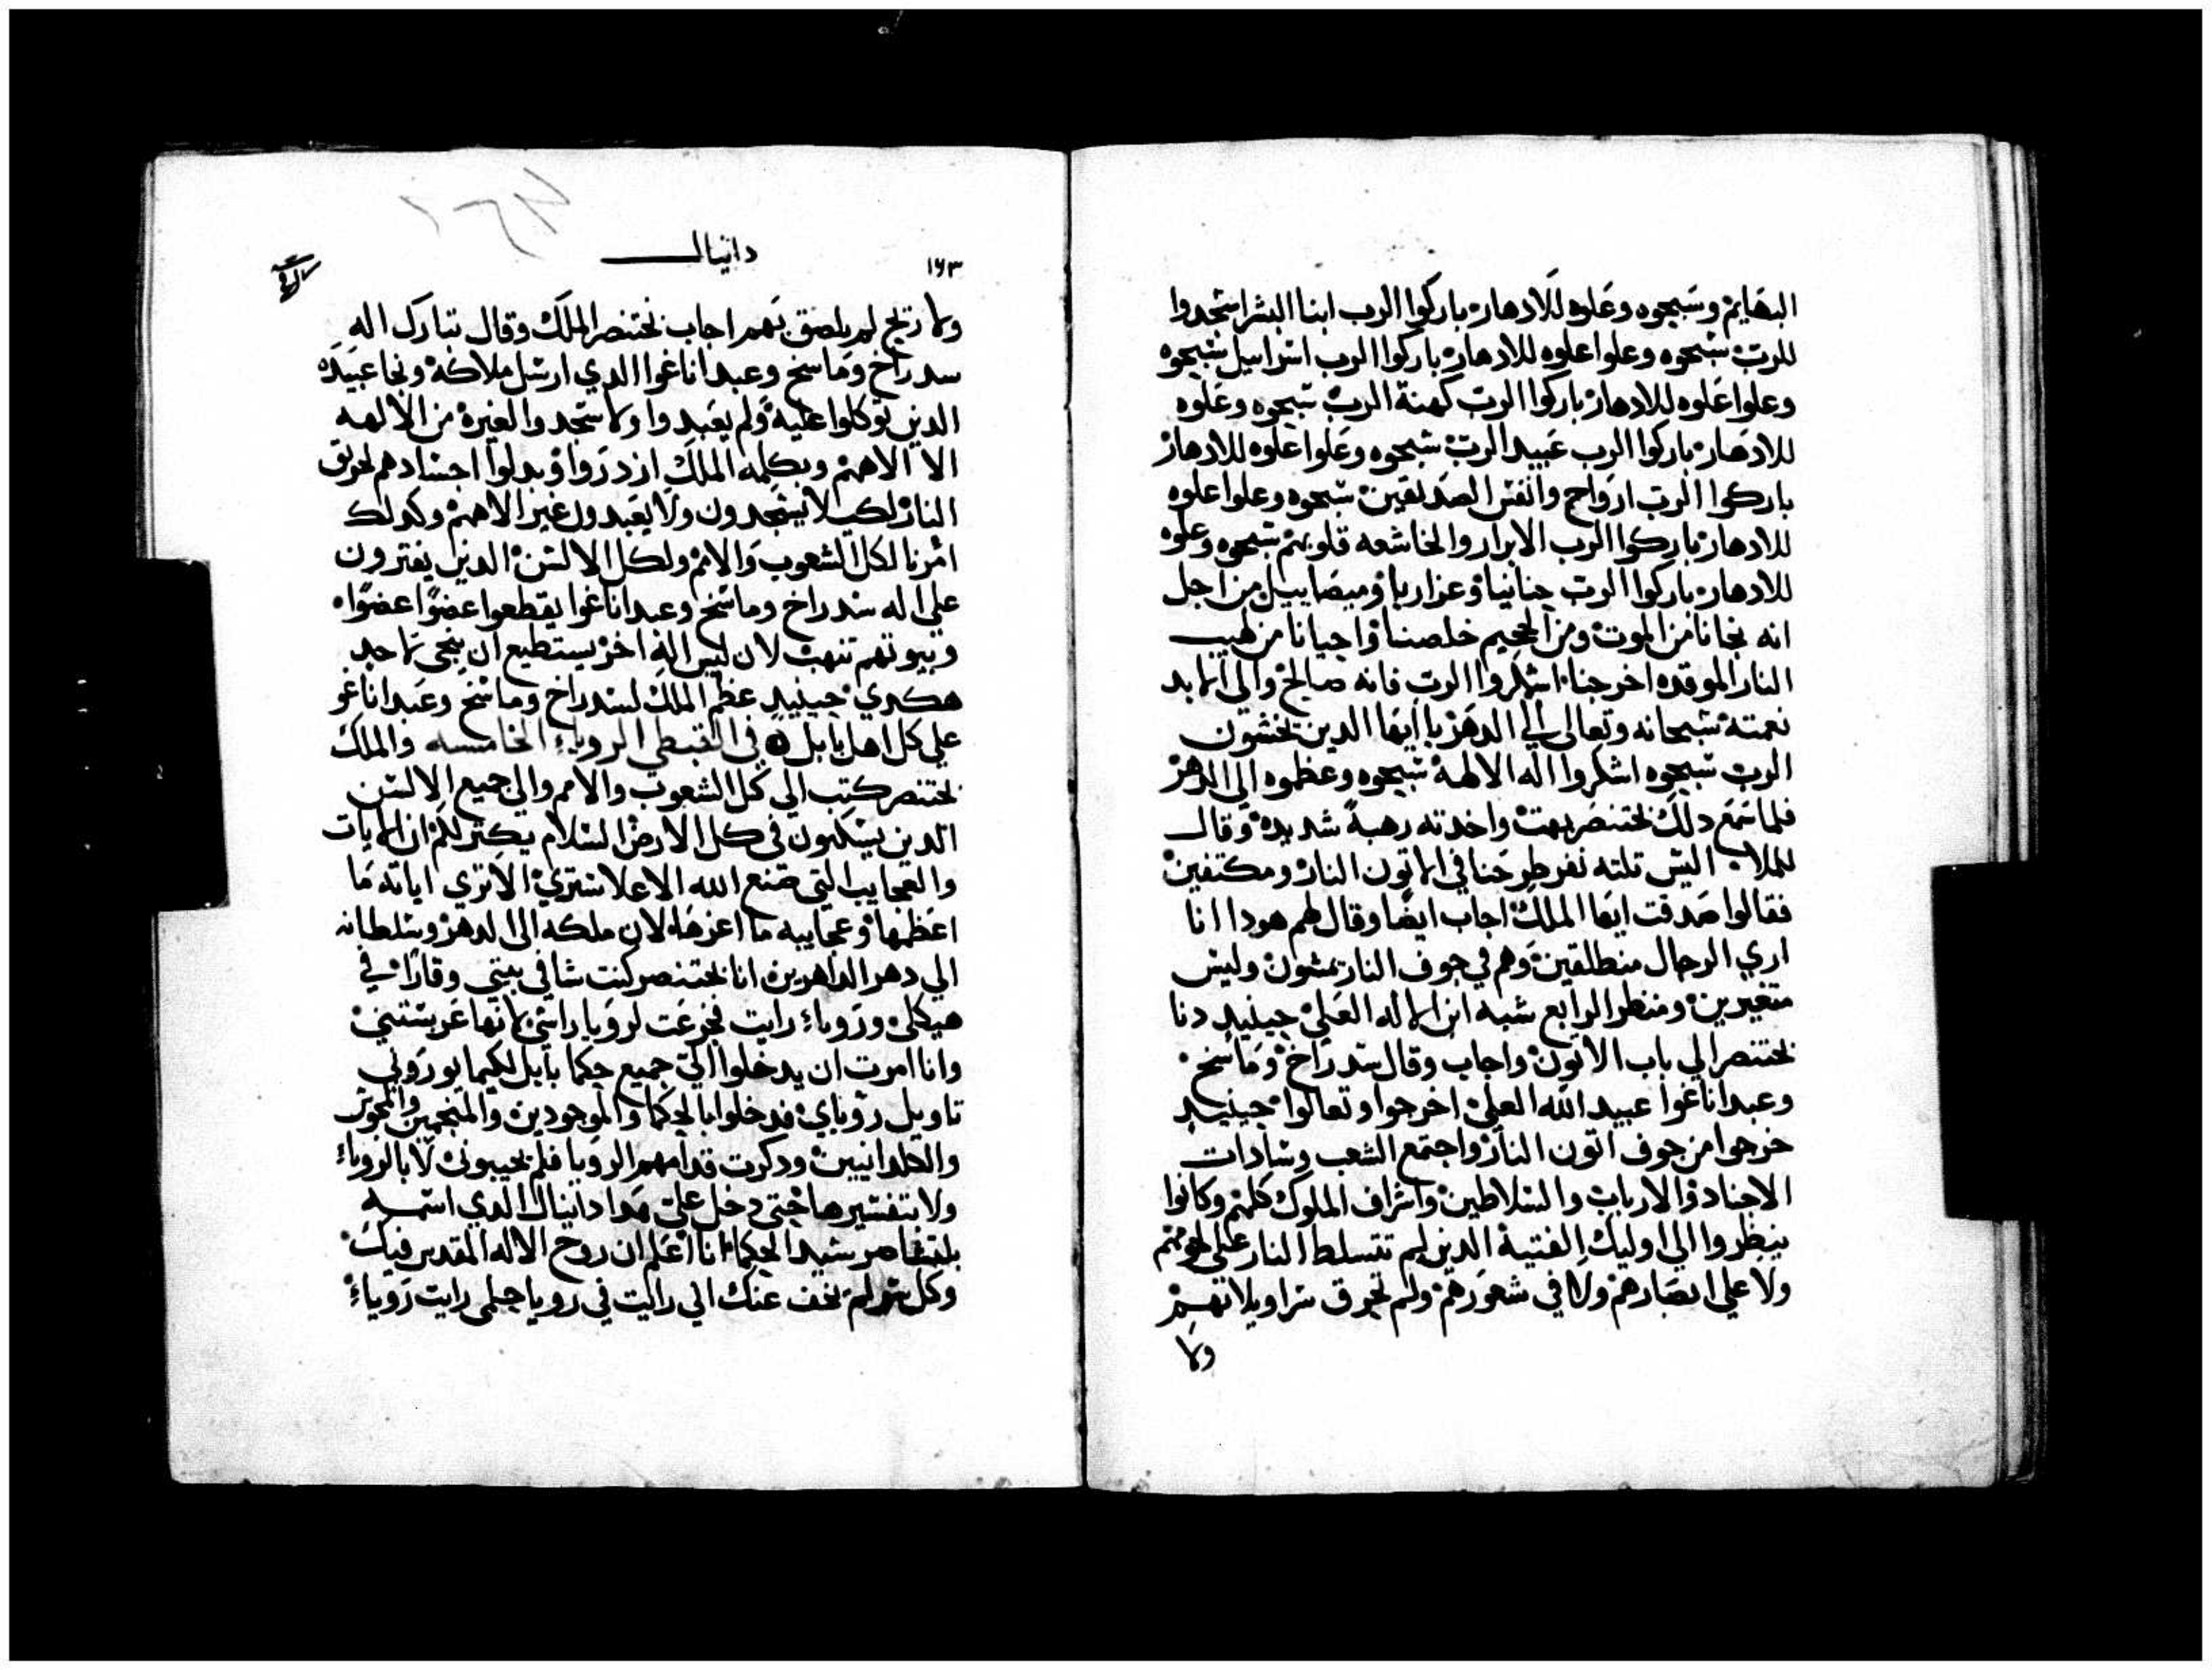 البهايم وسبحوه وعلوه للادهار باركوا الرب ابنا البشر اسجدوا
للرب سبحوه وعلوا علوه للادهار باركوا الرب اسراييل سبحوه
وعلوا علوه للادهار باركوا الرب كهنة الرب سبحوه وعلوه
للادهار باركوا الرب عبيد الرب سبحوه وعلوا علوه للادهار
باركوا الرب ارواح وانفس الصديقين سبحوه وعلوا علوه
للادهار باركوا الرب الابرار والخاشعه قلوبهم سبحوه وعلوه
للادهار باركوا الرب حنانيا وعزاريا وميصاييل من اجل
انه نجانا من الموت ومن الجحيم خلصنا واحيانا من لهيب
النار الموقده اخرجنا اشكروا الرب فانه صالح والي الابد
نعمته سبحانه وتعالى الي الدهر يا ايها الدين تخشون
الرب سبحوه اشكروا اله الالهة سبحوه وعظموه الي الدهر
فلما سمع دلك بختنصر بهت واخدته رهبة شديده وقال
للملا اليس تلته نفر طرحنا في الاتون النار ومكتفين
فقالوا صدقت ايها الملك اجاب ايضا وقال لهم هودا انا
اري الرجال منطلقين وهم في جوف النار يمشون وليس
متغيرين ومنظر الرابع شبه ابن الاله العلي حينيد دنا
بختنصر الي باب الاتون واجاب وقال سدراخ وماسخ
وعبداناغوا عبيد الله العلي اخرجوا وتعالوا حينيد
خرجوا من جوف اتون النار واجتمع الشعب وسادات
الاجناد والارباب والسلاطين واشراف الملوك كلهم وكانوا
ينظروا الي اوليك الفتية الدين لم تتسلط النار علي لحومهم
ولا علي ابصارهم ولا في شعورهم ولم تحرق سراويلاتهم
ولا
١٦٣
دانيال
ولا ريح لم يلصق بهم اجاب بختنصر الملك وقال تبارك اله
سدراخ وماسخ وعبداناغوا الدي ارسل ملاكه ونجا عبيده
الدين توكلوا عليه ولم يعبدوا ولا سجدوا لغيره من الالهه
الا الاههم وبكلمه الملك ازدروا وبدلوا اجسادهم لحريق
النار لكي لا يسجدون ولا يعبدون غير الاههم وكدلك
امرنا لكل الشعوب والامم ولكل الالسن الدين يفترون
علي اله سدراخ وماسخ وعبداناغوا يقطعوا عضوا عضوا
وبيوتهم تنهب لان ليس اله اخر يستطيع ان ينجي لاحد
هكدي حينيد عظم الملك لسدراخ وماسخ وعبداناغو
علي كل اهل بابل في القبطي الروياء الخامسه والملك
بختنصر كتب الي كل الشعوب والامم والي جميع الالسن
الدين يسكنون في كل الارض السلام يكتر لكم ان الايات
والعجايب التي صنع الله الاعلا سترى الاتري اياته ما
اعظمها وعجاييه ما اعزها لان ملكه الي الدهر وسلطانه
الي دهر الداهرين انا بختنصر كنت شا في بيتي وقارا في
هيكلي وروياء رايت فجزعت لرويا راسي لانها عربستني
وانا امرت ان يدخلوا الي جميع حكما بابل لكيما يوروني
تاويل روياي فدخلوا بالحكما والموجودين والمنجمين والمجوس
والكلدانيين ودكرت قدامهم الرويا فلم يجيبوني لا بالروياء
ولا بتفسيرها حتي دخل علي هدا دانيال الدي اسمه
بلتشاصر سيد الحكما انا اعلم ان روح الاله المقدس فيك
وكل سر لم يخف عنك الي رايت في رويا حلمي رايت روياء